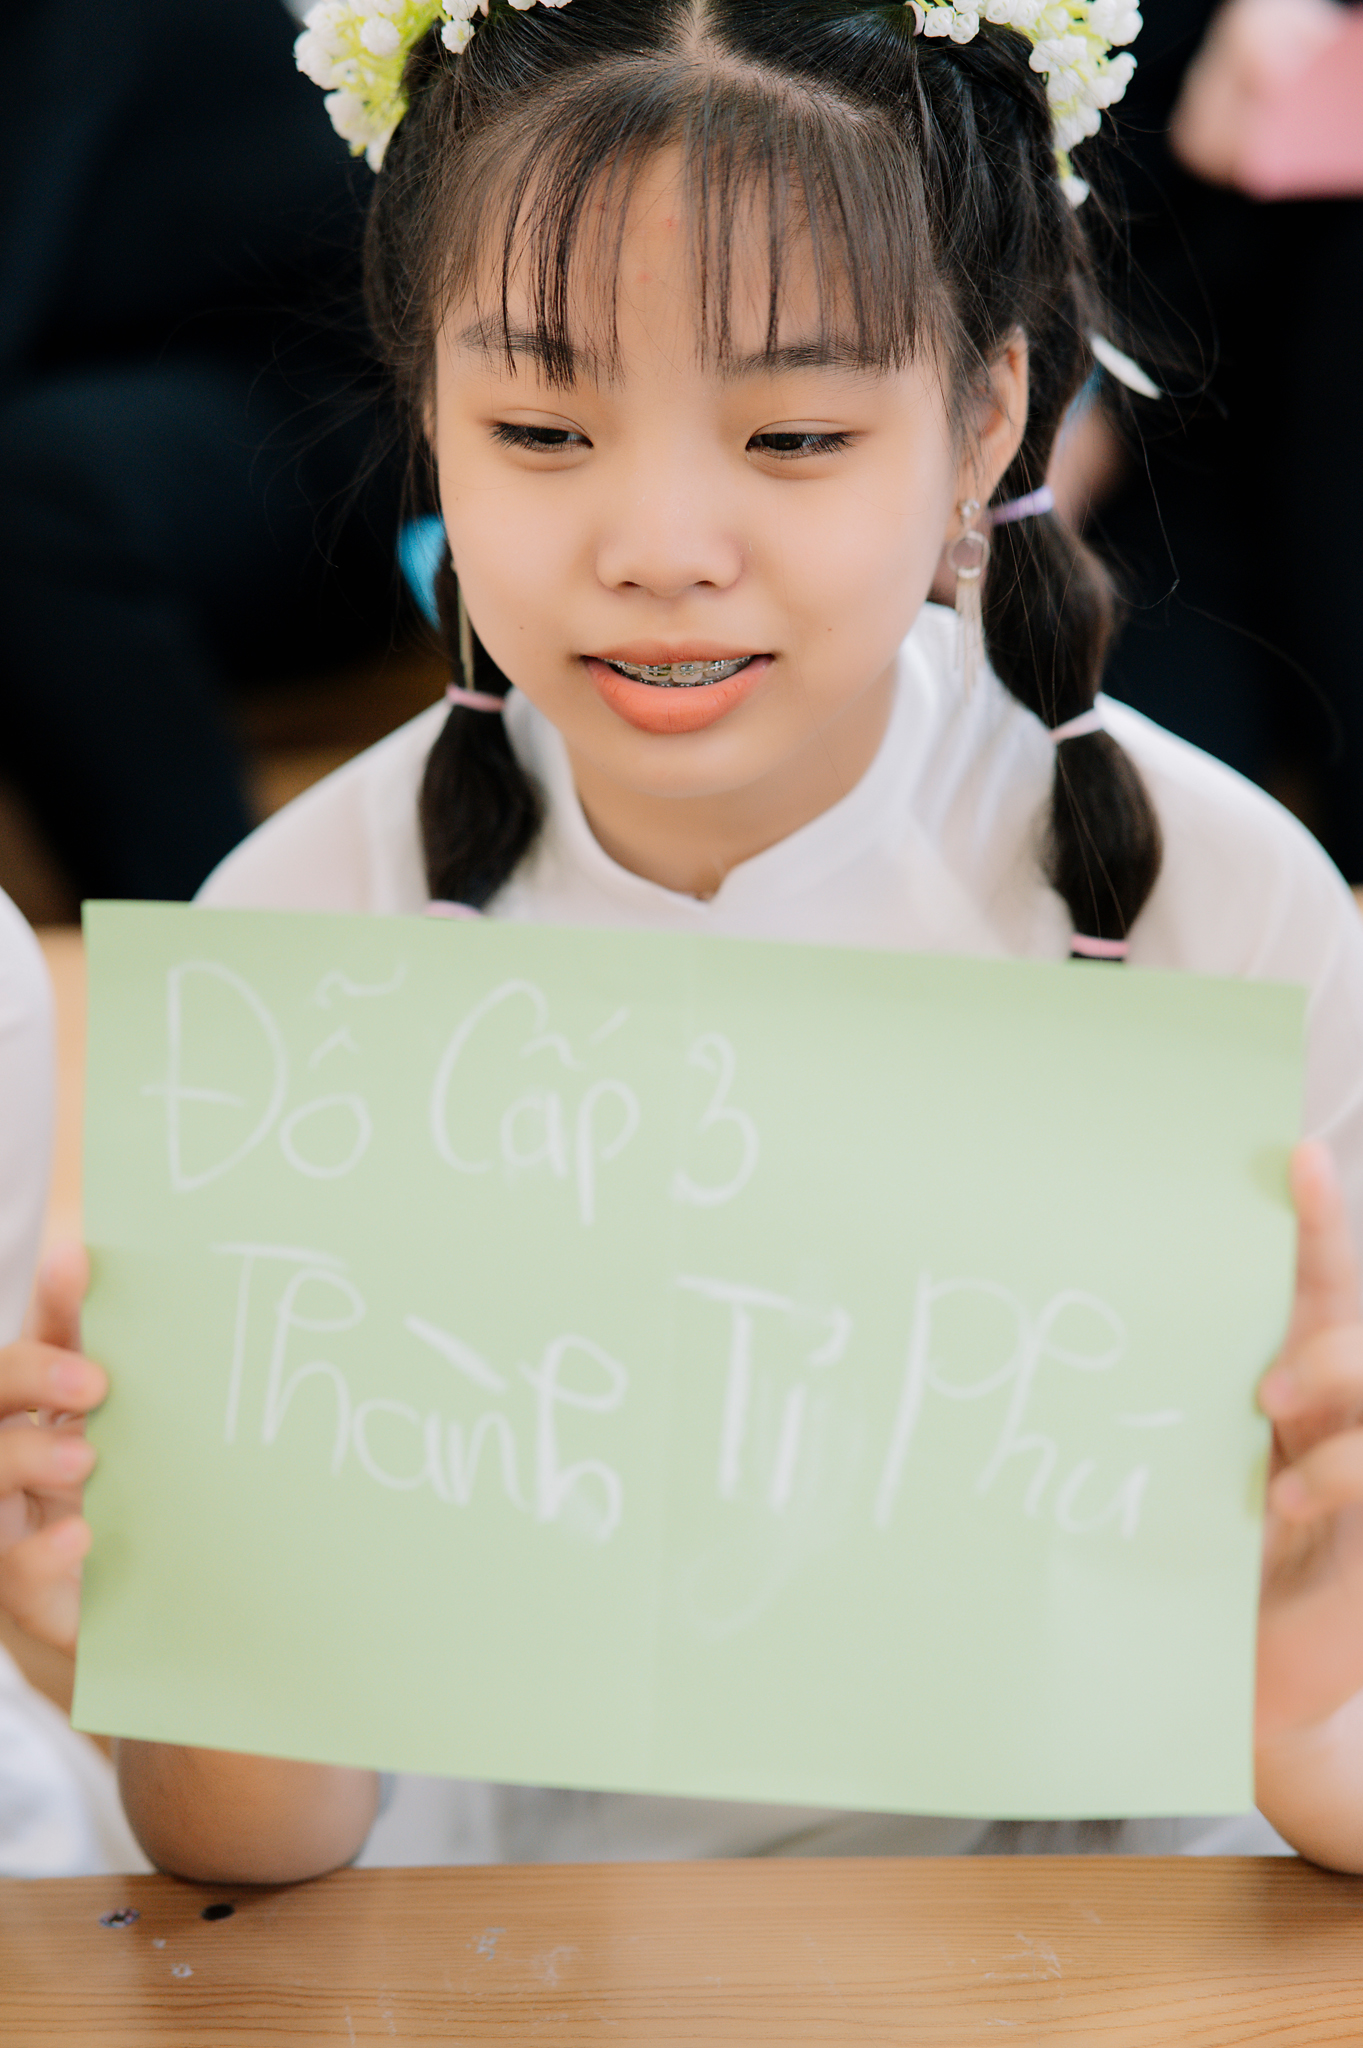 Đỗ Cấp 3
Thành Tỷ Phú